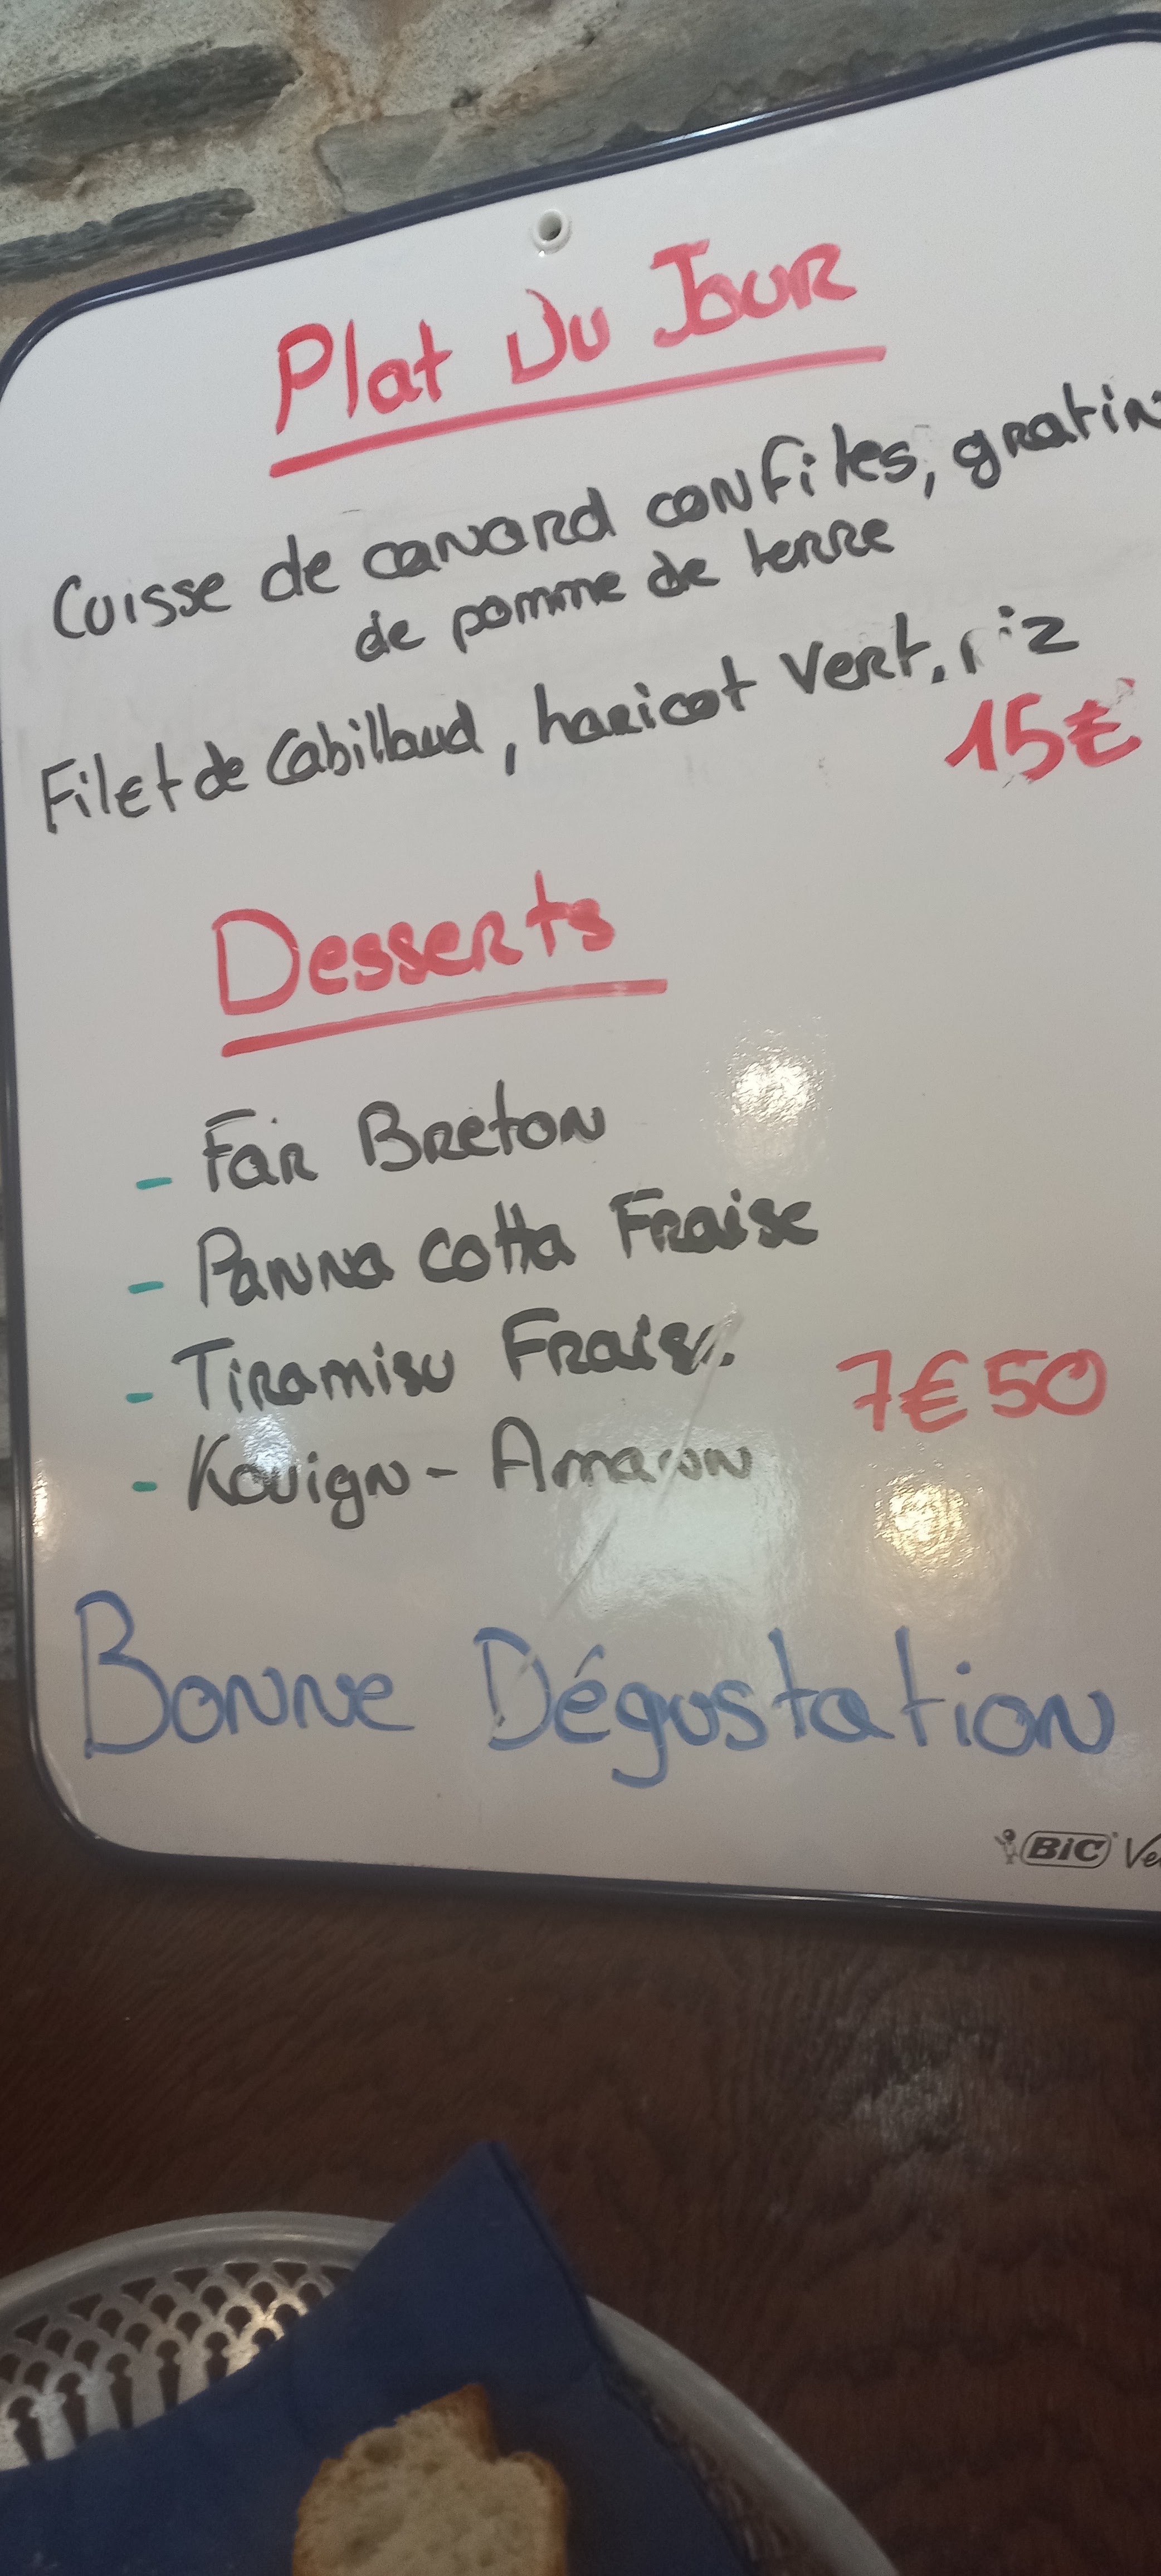 Plat Du Jour
Cuisse de canard confites, gratin
de pomme de terre
Filet de Cabillaud, haricot vert, riz
15€
Desserts
- Far Breton
- Panna cotta Fraise
- Tiramisu Fraise
7€50
- Kouign-Amann
Bonne Dégustation
BIC